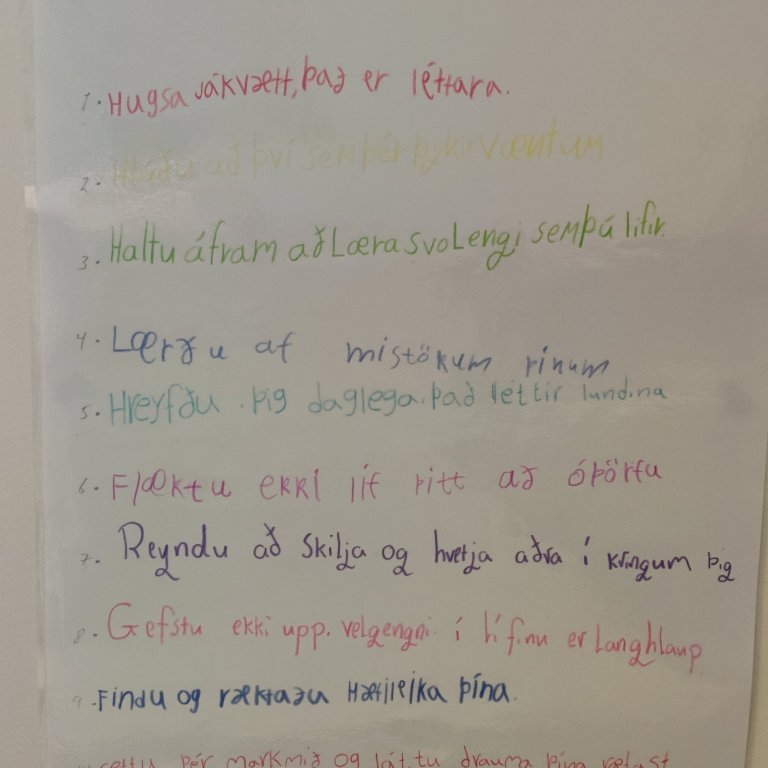 1. Hugsa jákvætt, það er léttara.
2. Hlúðu að því sem þér þykir vænt um
3. Haltu áfram að Læra svo Lengi sem þú lifir.
4. Lærðu af mistökum þínum
5. Hreyfðu þig daglega. það léttir lundina
6. Flæktu ekki líf þitt að óþörfu
7. Reyndu að skilja og hvetja aðra í kringum þig
8. Gefstu ekki upp. velgengni í lífinu er Langhlaup
9. Findu og ræktaðu Hæfileika þína.
settu þér markmið og láttu drauma þína rætast